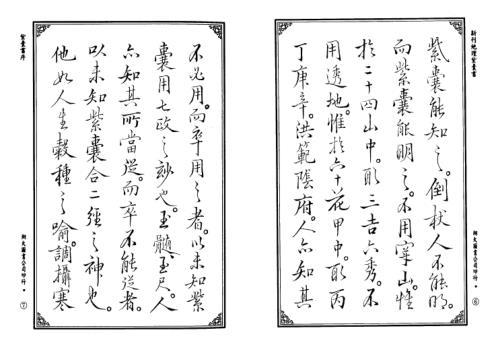 新刊地理紫囊書
紫囊能知之。倒杖人不能明。
而紫囊能明之。不用穿山。惟
於二十四山中。取三吉六秀。不
用透地。惟於六十花甲中。取丙
丁庚辛。洪範陰府。人亦知其
翔大圖書公司印行・⑥
不必用。而卒用之者。以未知紫
囊用七政之妙也。玉髓玉尺。人
亦知其所當從。而卒不能從者。
以未知紫囊合二經之神也。
他如人生穀種之喻。調攝寒
紫囊書序
翔大圖書公司印行・⑦